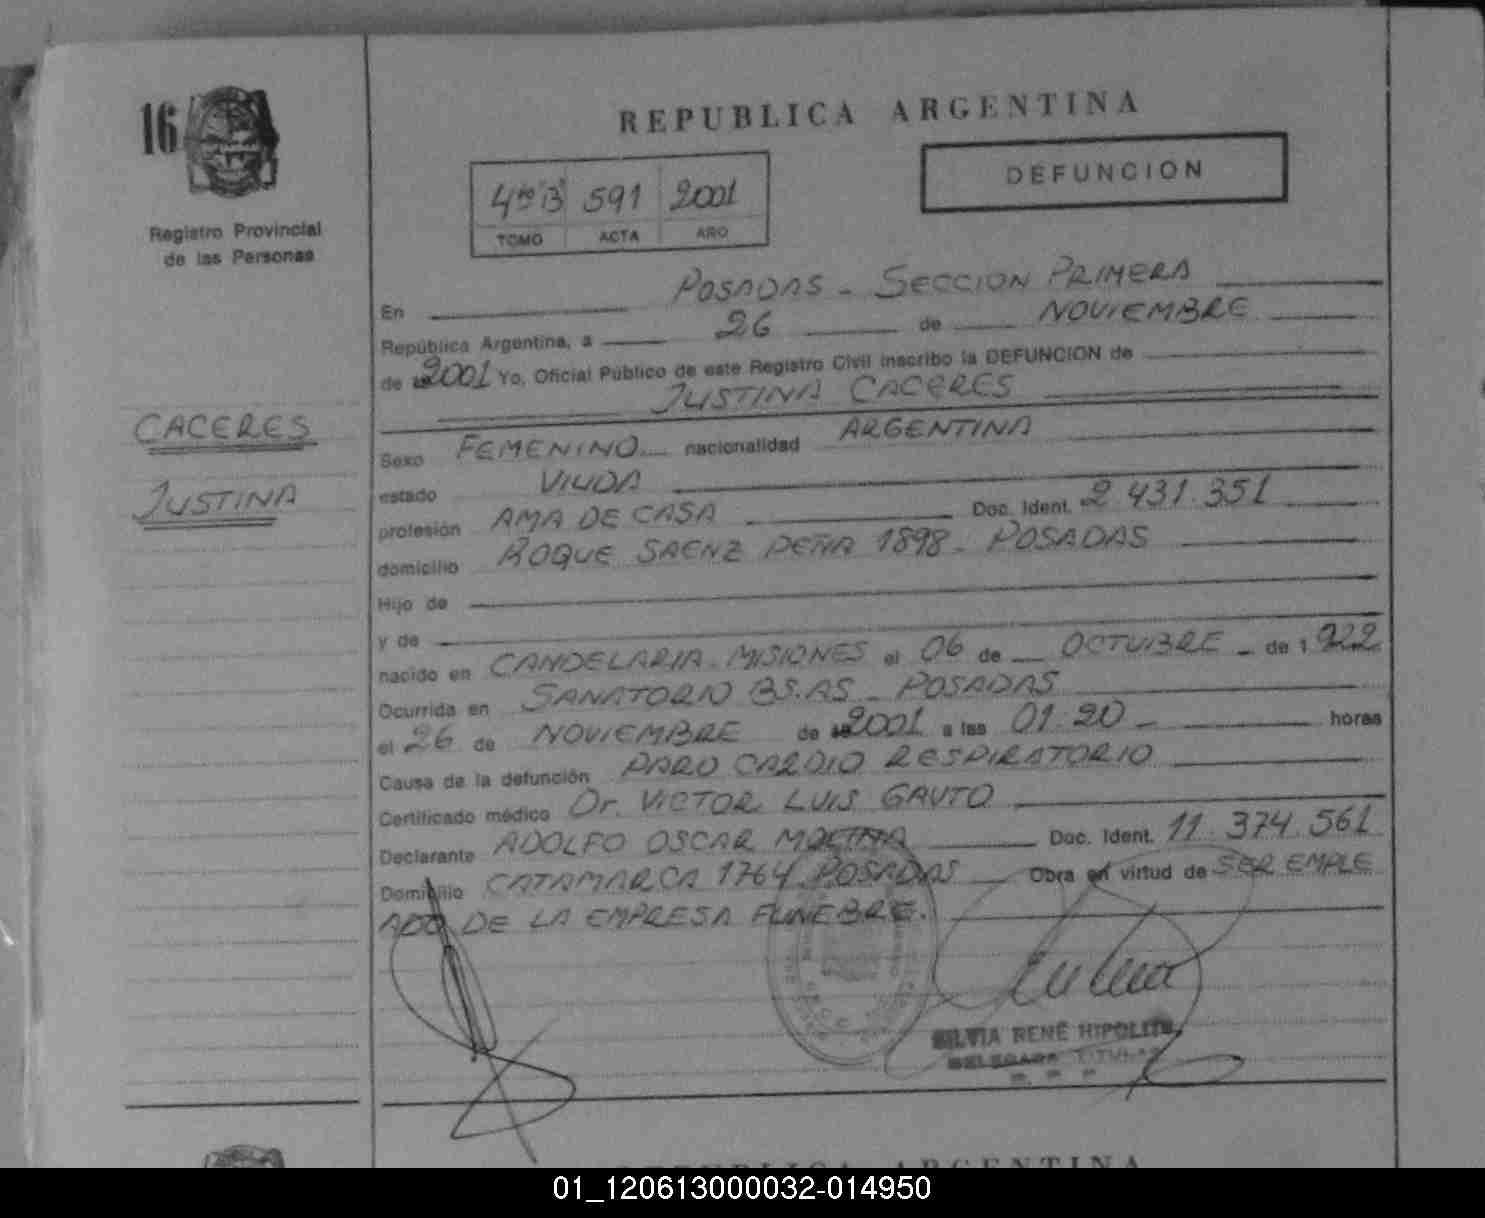 16
Registro Provincial
de las Personas
CACERES
JUSTINA
REPUBLICA ARGENTINA
DEFUNCION
4to B 591 2001
TOMO ACTA AÑO
En POSADAS - SECCION PRIMERA
República Argentina, a 26 de NOVIEMBRE
de 2001 Yo, Oficial Público de este Registro Civil inscribo la DEFUNCION de
JUSTINA CACERES
Sexo FEMENINO nacionalidad ARGENTINA
estado VIUDA
profesión AMA DE CASA Doc. Ident. 2.431.351
domicilio ROQUE SAENZ PEÑA 1898 - POSADAS
Hijo de
y de
nacido en CANDELARIA - MISIONES el 06 de OCTUBRE - de 1922
Ocurrida en SANATORIO BS.AS - POSADAS
el 26 de NOVIEMBRE de 2001 a las 01.20 - horas
Causa de la defunción PARO CARDIO RESPIRATORIO
Certificado médico Dr. VICTOR LUIS GAUTO
Declarante ADOLFO OSCAR MOLINA Doc. Ident. 11.374.561
Domicilio CATAMARCA 1764 POSADAS Obra en virtud de SER EMPLE
ADO DE LA EMPRESA FUNEBRE.
SILVIA RENE HIPOLITO
DELEGADA TITULAR
REPUBLICA ARGENTINA
01_120613000032-014950